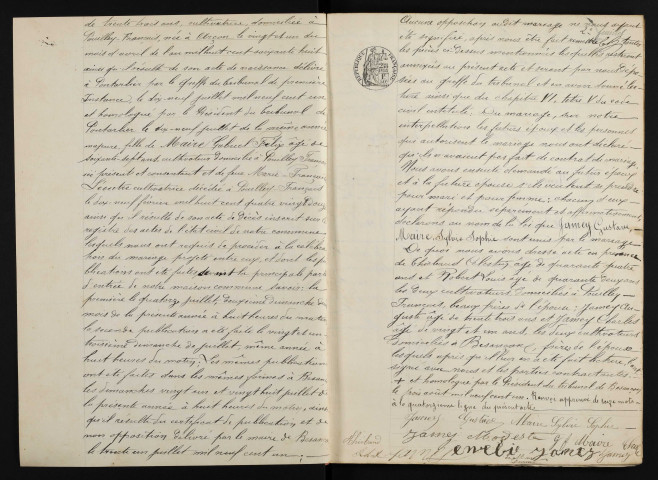 de trente trois ans, cultivatrice, domiciliée à
Pouilley-Français, née à Arçon le vingt et un du
mois d'avril de l'an mil huit cent soixante huit
ainsi qu'il résulte de son acte de naissance délivré
à Pontarlier par le greffe du tribunal de première
Instance, le dix neuf juillet mil neuf cent un
et homologué par le Président du tribunal de
Pontarlier le dix neuf juillet de la même année
majeure, fille de Maire Gabriel Félix âgé de
soixante sept ans cultivateur domicilié à Pouilley-Français
ici présent et consentant et de feu Marie Françoise
cultivatrice décédée à Pouilley-Français
le dix neuf mil huit cent quatre vingt
ainsi qu'il résulte de son acte de décès inscrit aux
registres des actes de l'état civil de notre commune
lesquels nous ont requis de procéder à la célébra-
tion du mariage projeté entre eux et dont les pu-
blications ont été faites devant la principale porte
d'entrée de notre maison commune savoir: la
première le quatorze juillet, deuxième dimanche du
mois de la présente année à huit heures du matin
la seconde publication a été faite le vingt et un
troisième dimanche de juillet, même année à
huit heures du matin. Les mêmes publications
ont été faites dans les mêmes formes à Besançon
les dimanches vingt un et vingt huit juillet de
la présente année à huit heures du matin, ainsi
qu'il résulte du certificat de publication et de
non opposition délivré par le maire de Besançon
le trente un juillet mil neuf cent un.
Aucune opposition audit mariage ne nous ayant
été signifiée, après nous être fait remettre
les pièces ci-dessus mentionnées lesquelles resteront
annexées au présent acte et seront par nous dépo-
sées au greffe du tribunal et en avoir donné lec-
ture ainsi que du chapitre VI, titre V du code
civil intitulé, Du mariage, sur notre
interpellation les futurs époux et les personnes
qui autorisent le mariage nous ont déclaré
qu'ils n'avaient pas fait de contrat de mariage
Nous avons ensuite demandé au futur époux
et à la future épouse s'ils veulent se prendre
pour mari et pour femme; chacun d'eux
ayant répondu séparément et affirmativement,
déclarons au nom de la loi que Jamey Gustave,
Maire Sylvie Sophie sont unis par le mariage
De quoi nous avons dressé acte en présence
de âgé de quarante quatre
ans et Robert Louis âgé de quarante deux ans
les deux cultivateurs domiciliés à Pouilley-
Français, beaux frères de l'épouse; Jamey Au-
guste âgé de trente trois ans et Jamey Charles
âgé de vingt et un ans les deux cultivateurs
domiciliés à Besançon, frères de l'époux
lesquels après qu'il leur en a été fait lecture l'ont
signé avec nous et les parties contractantes.
+ et homologué par le Président du tribunal de Besançon
le trois août mil neuf cent un. Renvoi approuvé de seize mots
à la quatorzième ligne du présent acte
Jamey Gustave Maire Sylvie Sophie
Jamey Modeste Maire
Jamey